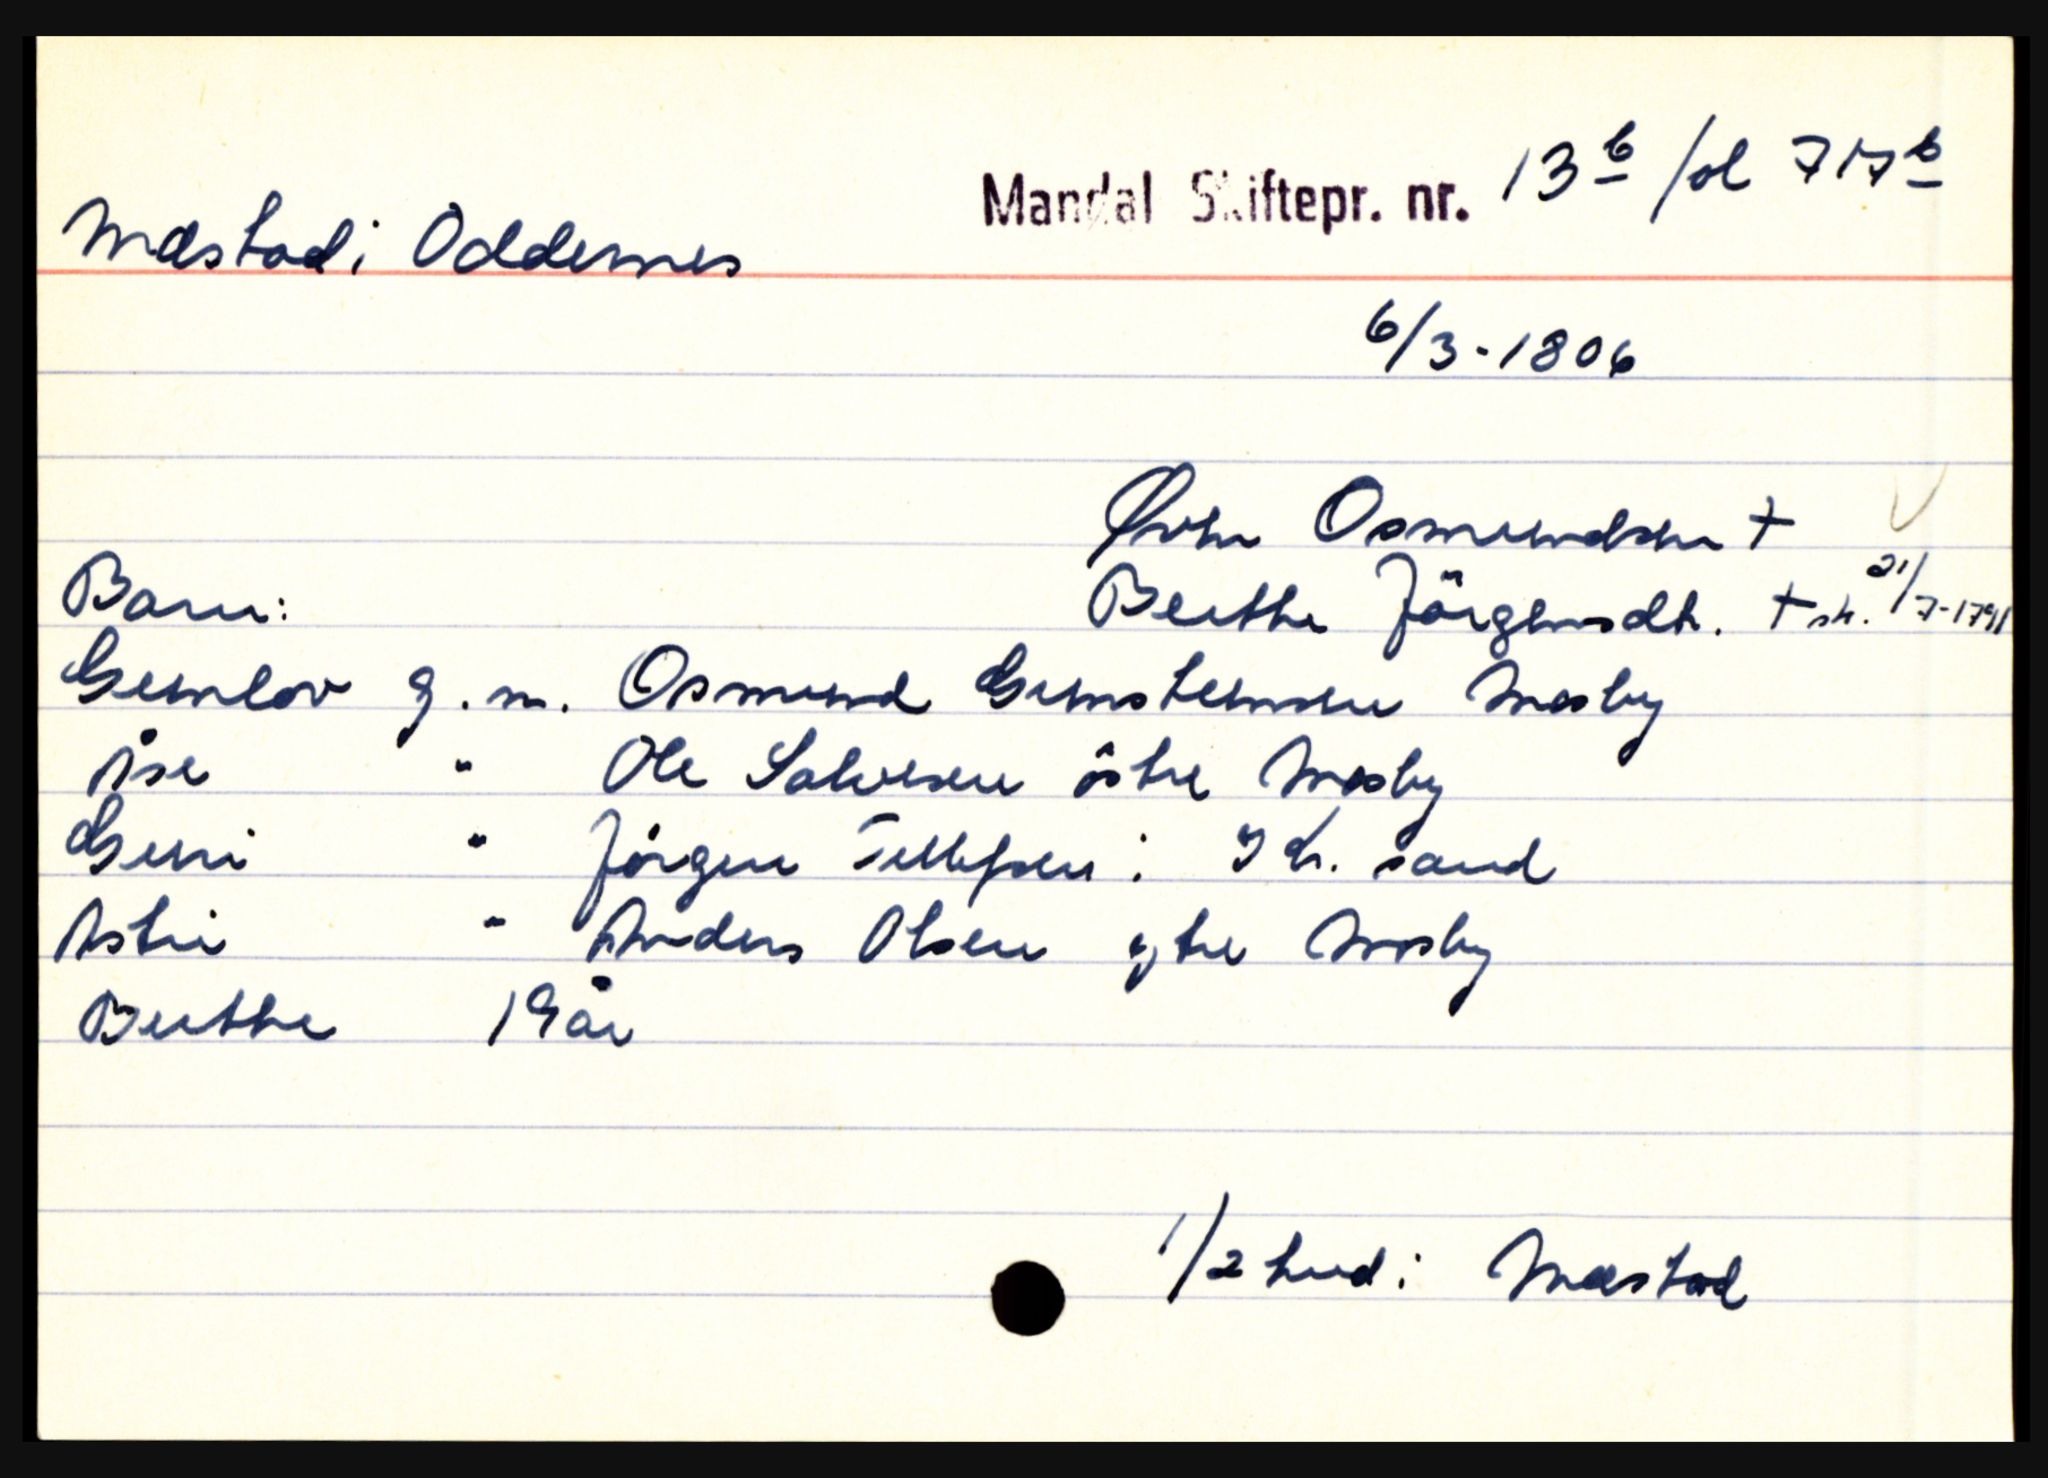 Mandal Skiftepr. nr. 13 b fol 717 b
Mæstad i Oddernes
6/3-1806
Osmundsen +
Barn: Berthe Jörgensdtr. + sk. 21/7-1791
Gunlov g.m. Osmund Gunsteinsen Mosby
Åse " Ole Salvesen östre Mosby
Guri " Jörgen Tellefsen i Kr. sand
Astri " Anders Olsen ytre Mosby
Berthe 19 år
1/2 hud i Mæstad